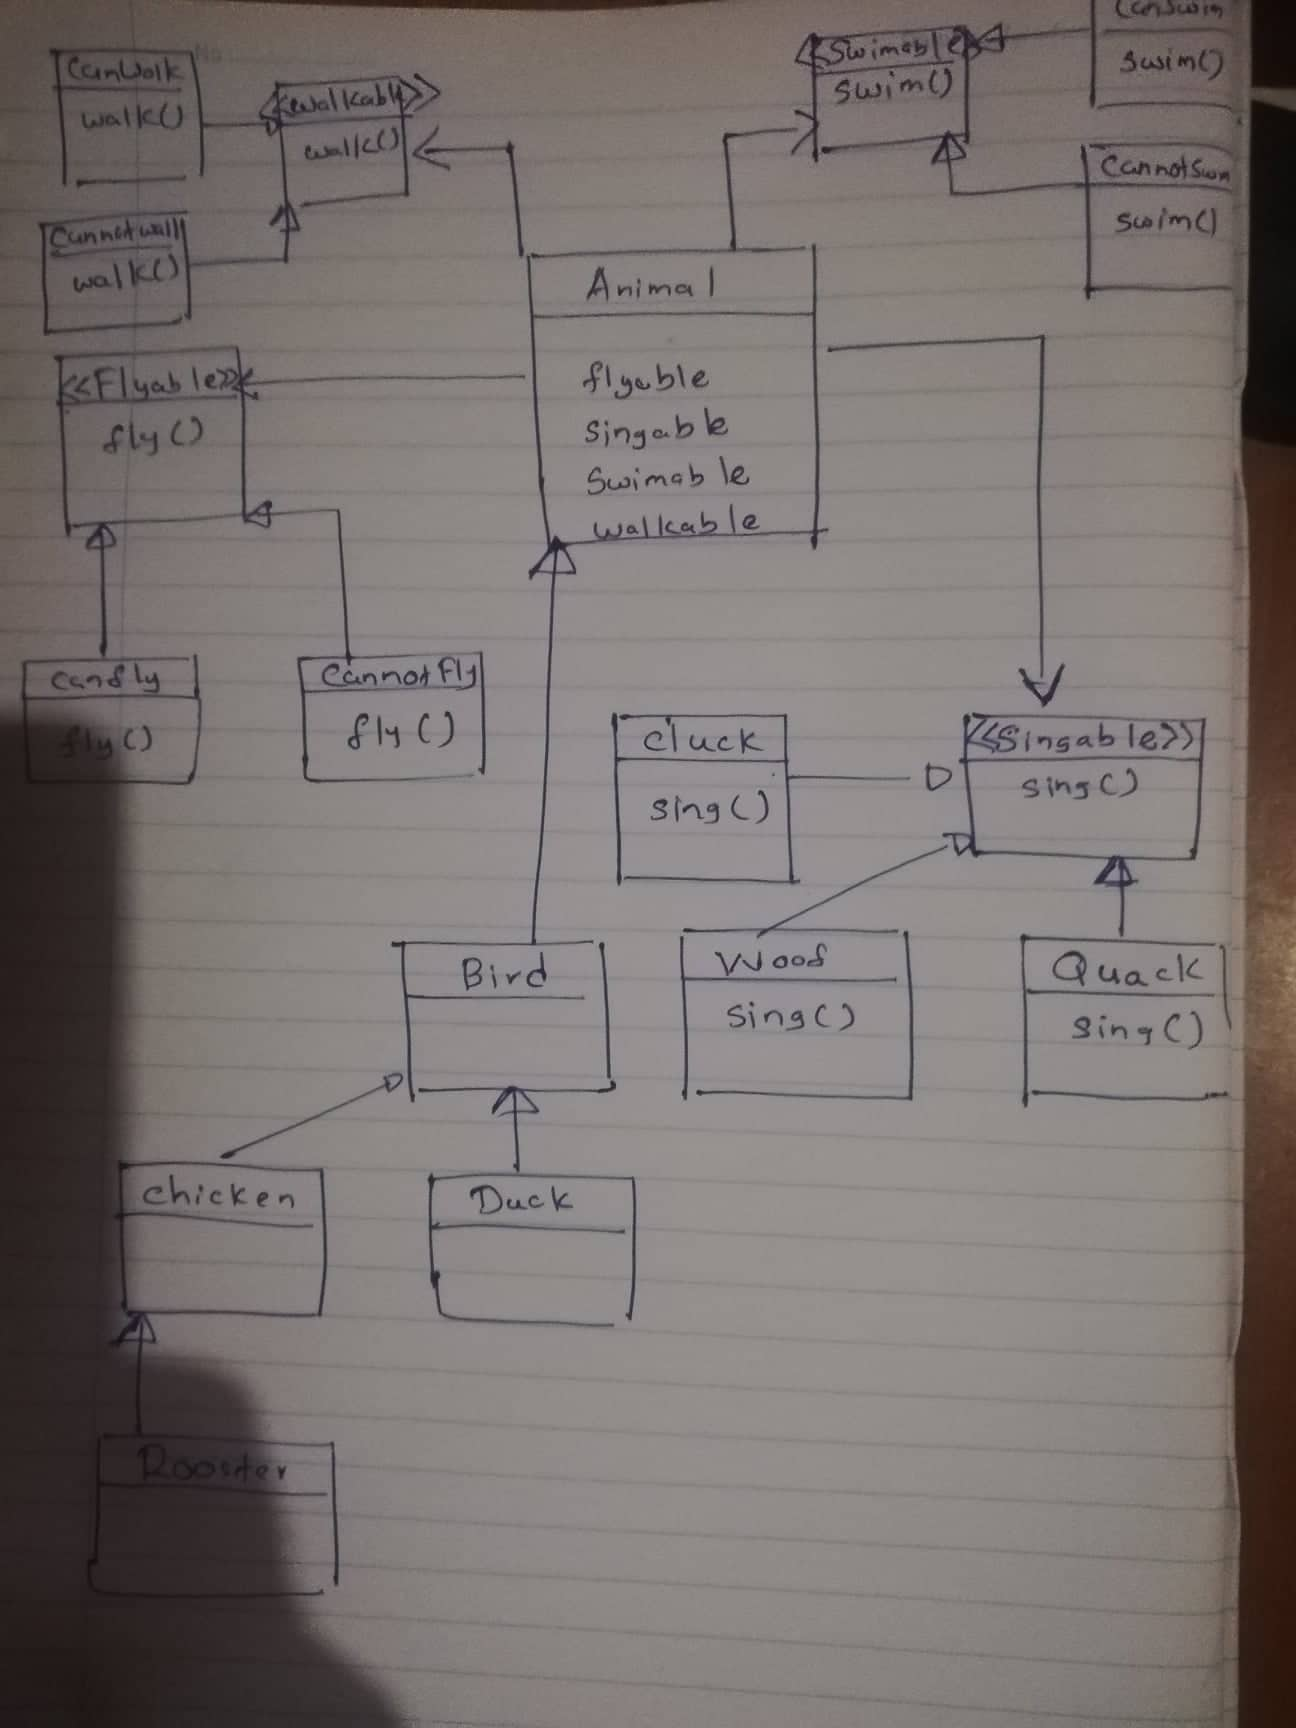 CanWalk
walk()
<<walkable>>
walk()
<<Swimable>>
swim()
CanSwim
swim()
Cannotwalk
walk()
CannotSwm
swim()
Animal
flyable
Singable
Swimable
walkable
<<Flyable>>
fly()
canfly
fly()
CannotFly
fly()
Cluck
sing()
<<Singable>>
sing()
Bird
Woof
sing()
Quack
sing()
chicken
Duck
Rooster